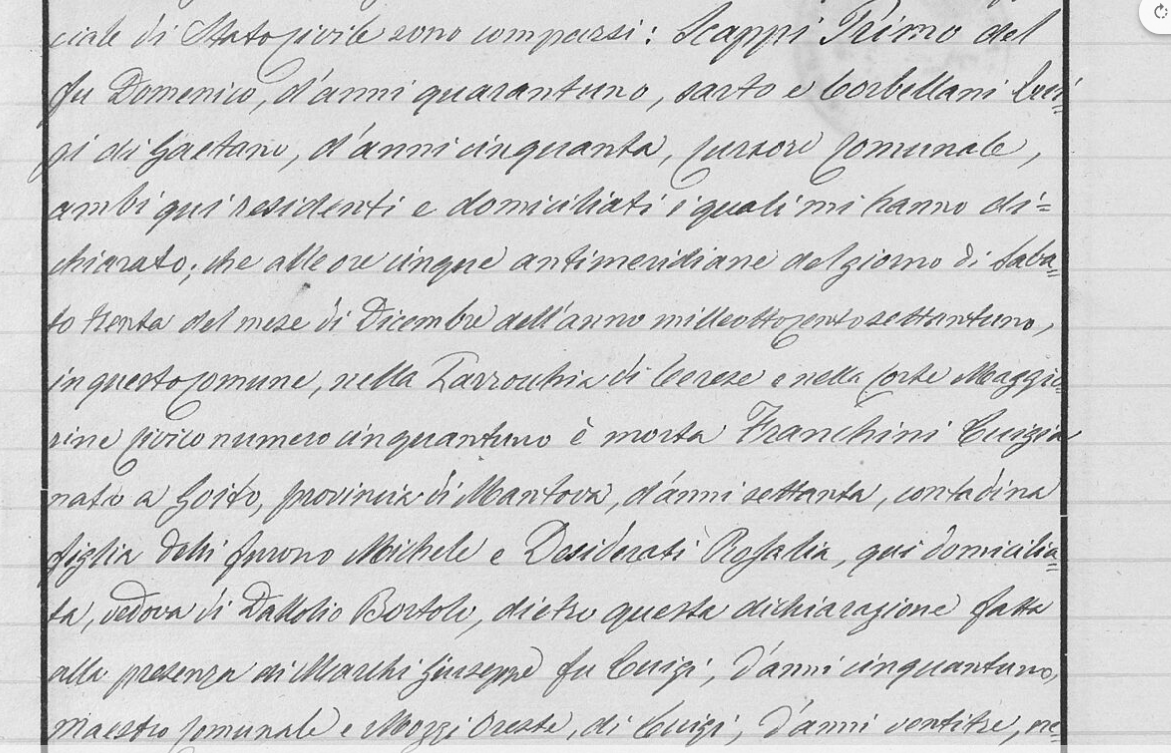 ciale di Stato Civile sono comparsi: Scappi Primo del
fu Domenico, d'anni quarantuno, sarto e Corbellani Lui=
gi di Gaetano, d'anni cinquanta, Cursore Comunale,
ambi qui residenti e domiciliati i quali mi hanno di=
chiarato, che alle ore cinque antimeridiane del giorno di Saba=
to trenta del mese di Dicembre dell'anno milleottocentosettantuno,
in questo Comune, nella Parrocchia di Cerese e nella Corte Maggio=
rine Civico numero cinquantuno è morta Franchini Luigia
nata a Goito, Provincia di Mantova, d'anni settanta, contadina
figlia delli furono Michele e Desiderati Rosalia, qui domicilia=
ta, vedova di Dallolio Bortolo, dietro questa dichiarazione fatta
alla presenza di Marchi Giuseppe fu Luigi, d'anni cinquantuno,
maestro Comunale e Mozzi Oreste, di Luigi, d'anni ventitre,